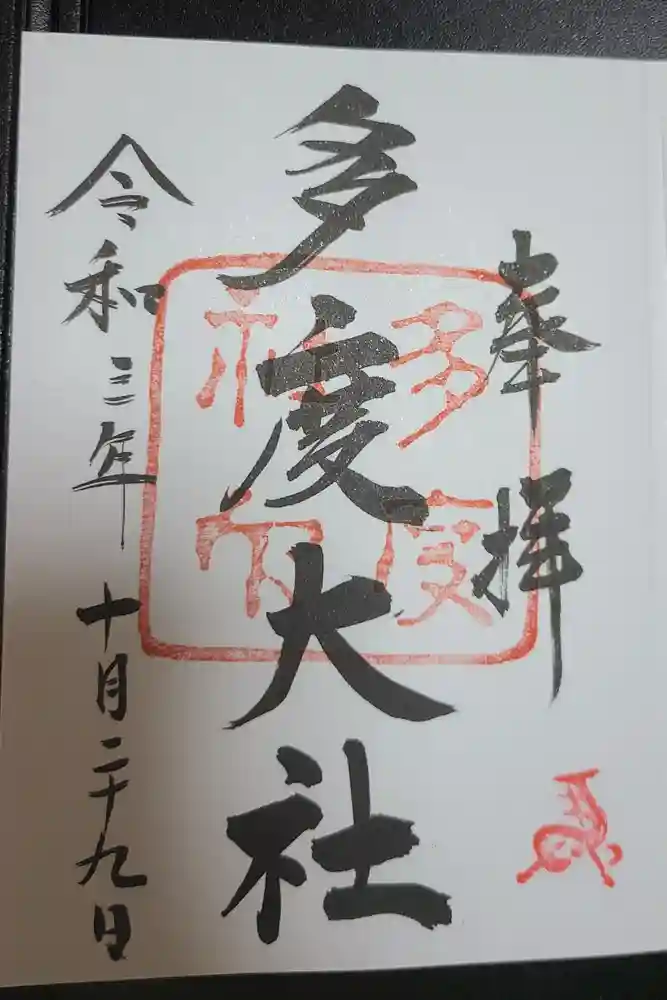 奉拝
多度大社
多度
神社
令和三年十月二十九日